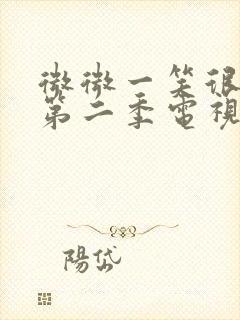 微微一笑很
第二季電視
陽岱